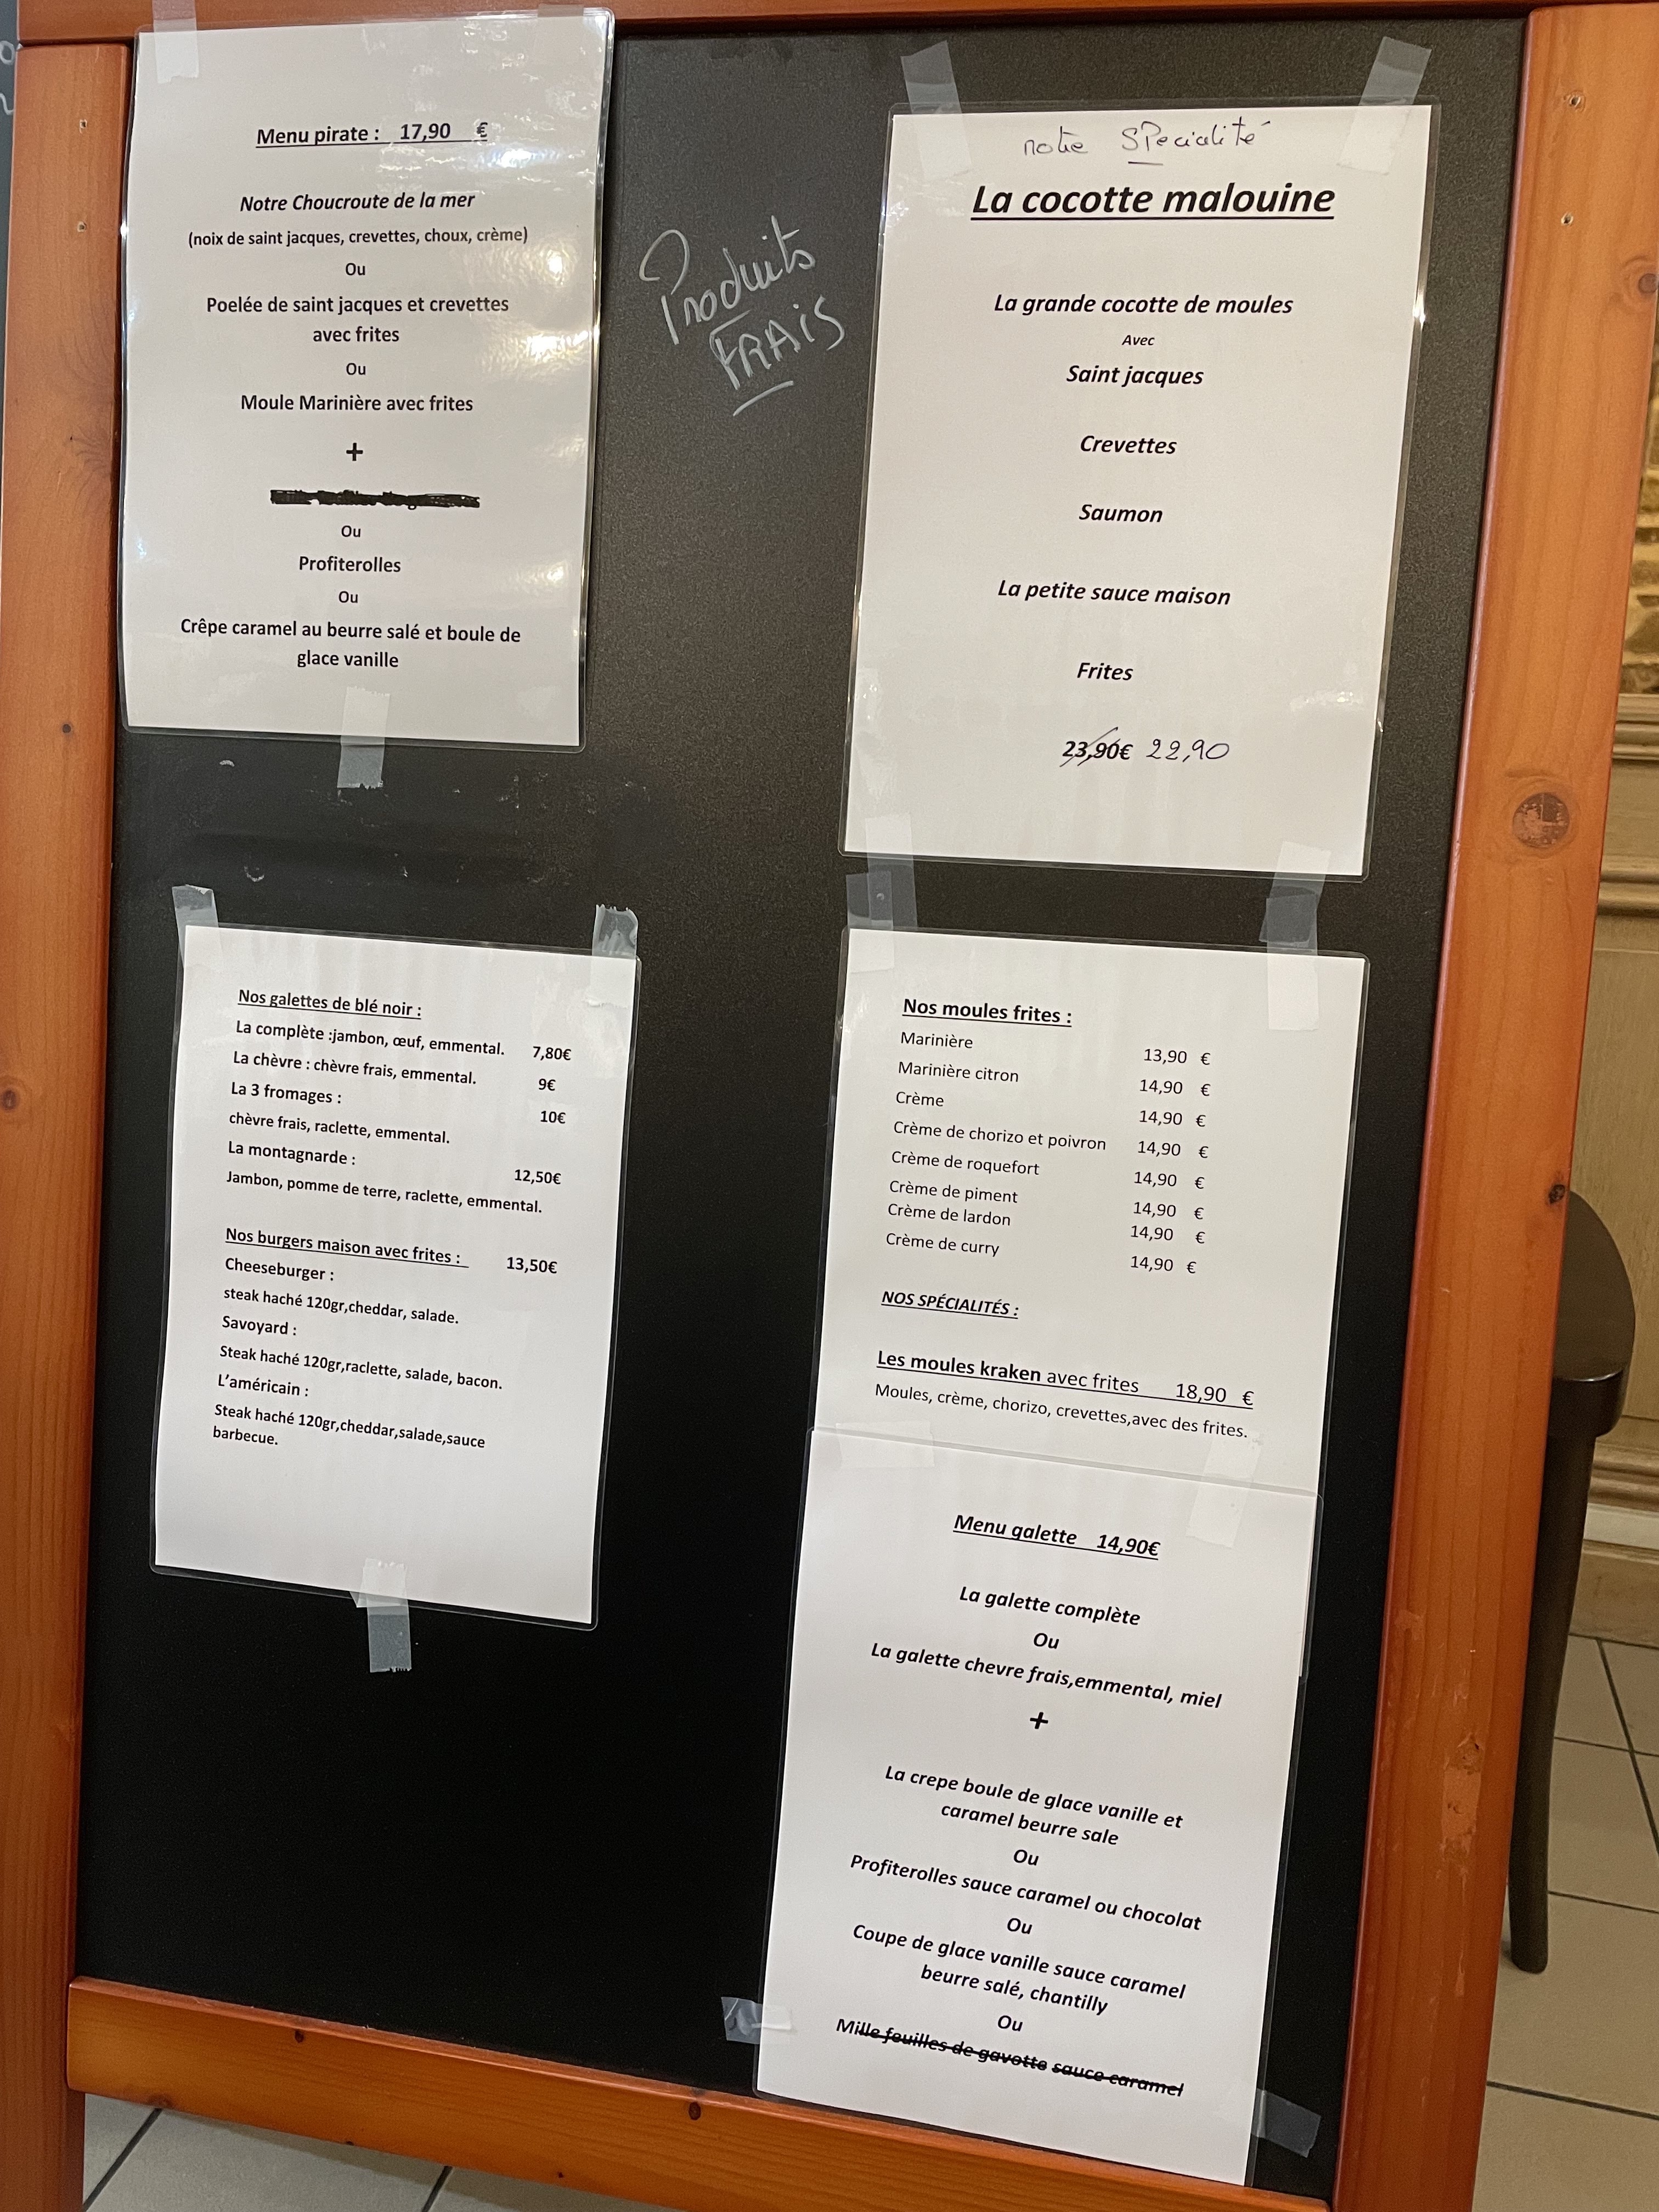 Menu pirate : 17,90 €
Notre Choucroute de la mer
(noix de saint jacques, crevettes, choux, crème)
Ou
Poelée de saint jacques et crevettes
avec frites
Ou
Moule Marinière avec frites
+
Ou
Profiterolles
Ou
Crêpe caramel au beurre salé et boule de
glace vanille
Produits
FRAIS
notre SPecialité
La cocotte malouine
La grande cocotte de moules
Avec
Saint jacques
Crevettes
Saumon
La petite sauce maison
Frites
23,90€ 22,90
Nos galettes de blé noir :
La complète :jambon, œuf, emmental. 7,80€
La chèvre : chèvre frais, emmental. 9€
La 3 fromages : 10€
chèvre frais, raclette, emmental.
La montagnarde : 12,50€
Jambon, pomme de terre, raclette, emmental.
Nos burgers maison avec frites : 13,50€
Cheeseburger :
steak haché 120gr,cheddar, salade.
Savoyard :
Steak haché 120gr,raclette, salade, bacon.
L'américain :
Steak haché 120gr,cheddar,salade,sauce
barbecue.
Nos moules frites :
Marinière 13,90 €
Marinière citron 14,90 €
Crème 14,90 €
Crème de chorizo et poivron 14,90 €
Crème de roquefort 14,90 €
Crème de piment 14,90 €
Crème de lardon 14,90 €
Crème de curry 14,90 €
NOS SPÉCIALITÉS :
Les moules kraken avec frites 18,90 €
Moules, crème, chorizo, crevettes,avec des frites.
Menu galette 14,90€
La galette complète
Ou
La galette chevre frais,emmental, miel
+
La crepe boule de glace vanille et
caramel beurre sale
Ou
Profiterolles sauce caramel ou chocolat
Ou
Coupe de glace vanille sauce caramel
beurre salé, chantilly
Ou
Mille feuilles de gavotte sauce caramel